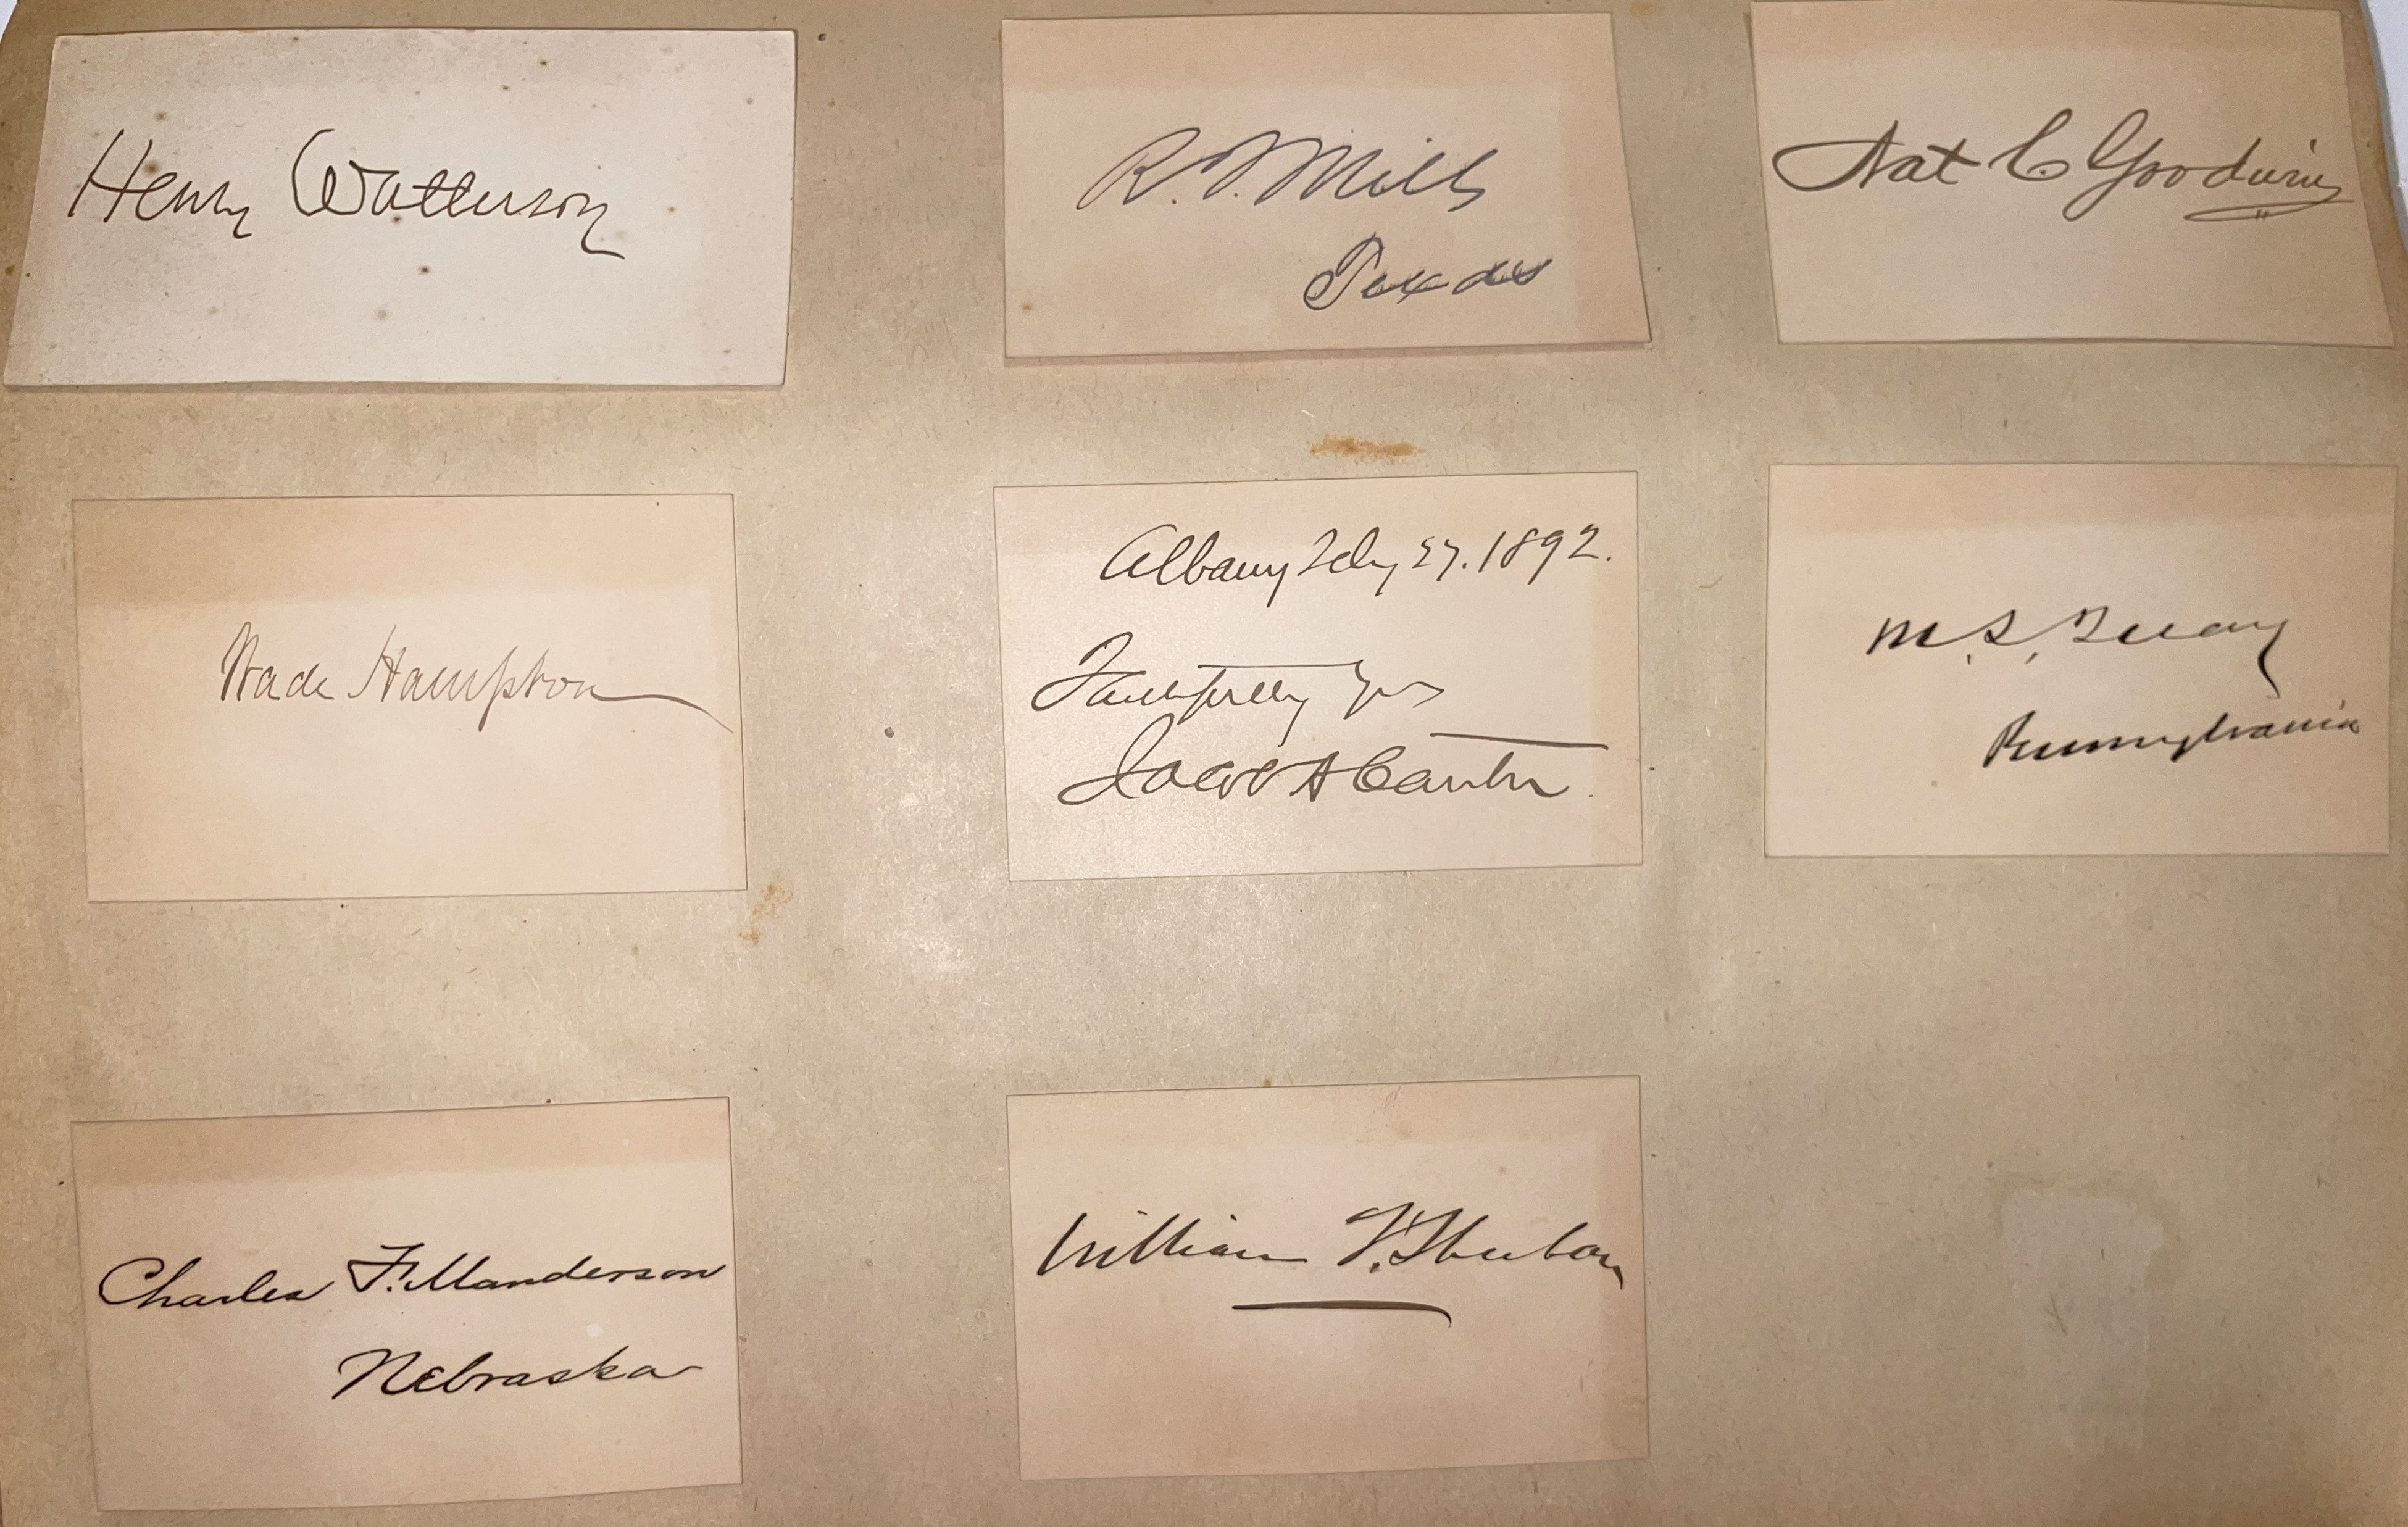 Henry Watterson
R. Q. Mills
Texas
Nat C. Goodwin
Wade Hampton
Albany Feby 27. 1892.
Faithfully Yrs
Jacob A Cantor.
M. S. Quay
Pennsylvania
Charles F. Manderson
Nebraska
William F. Sheehan